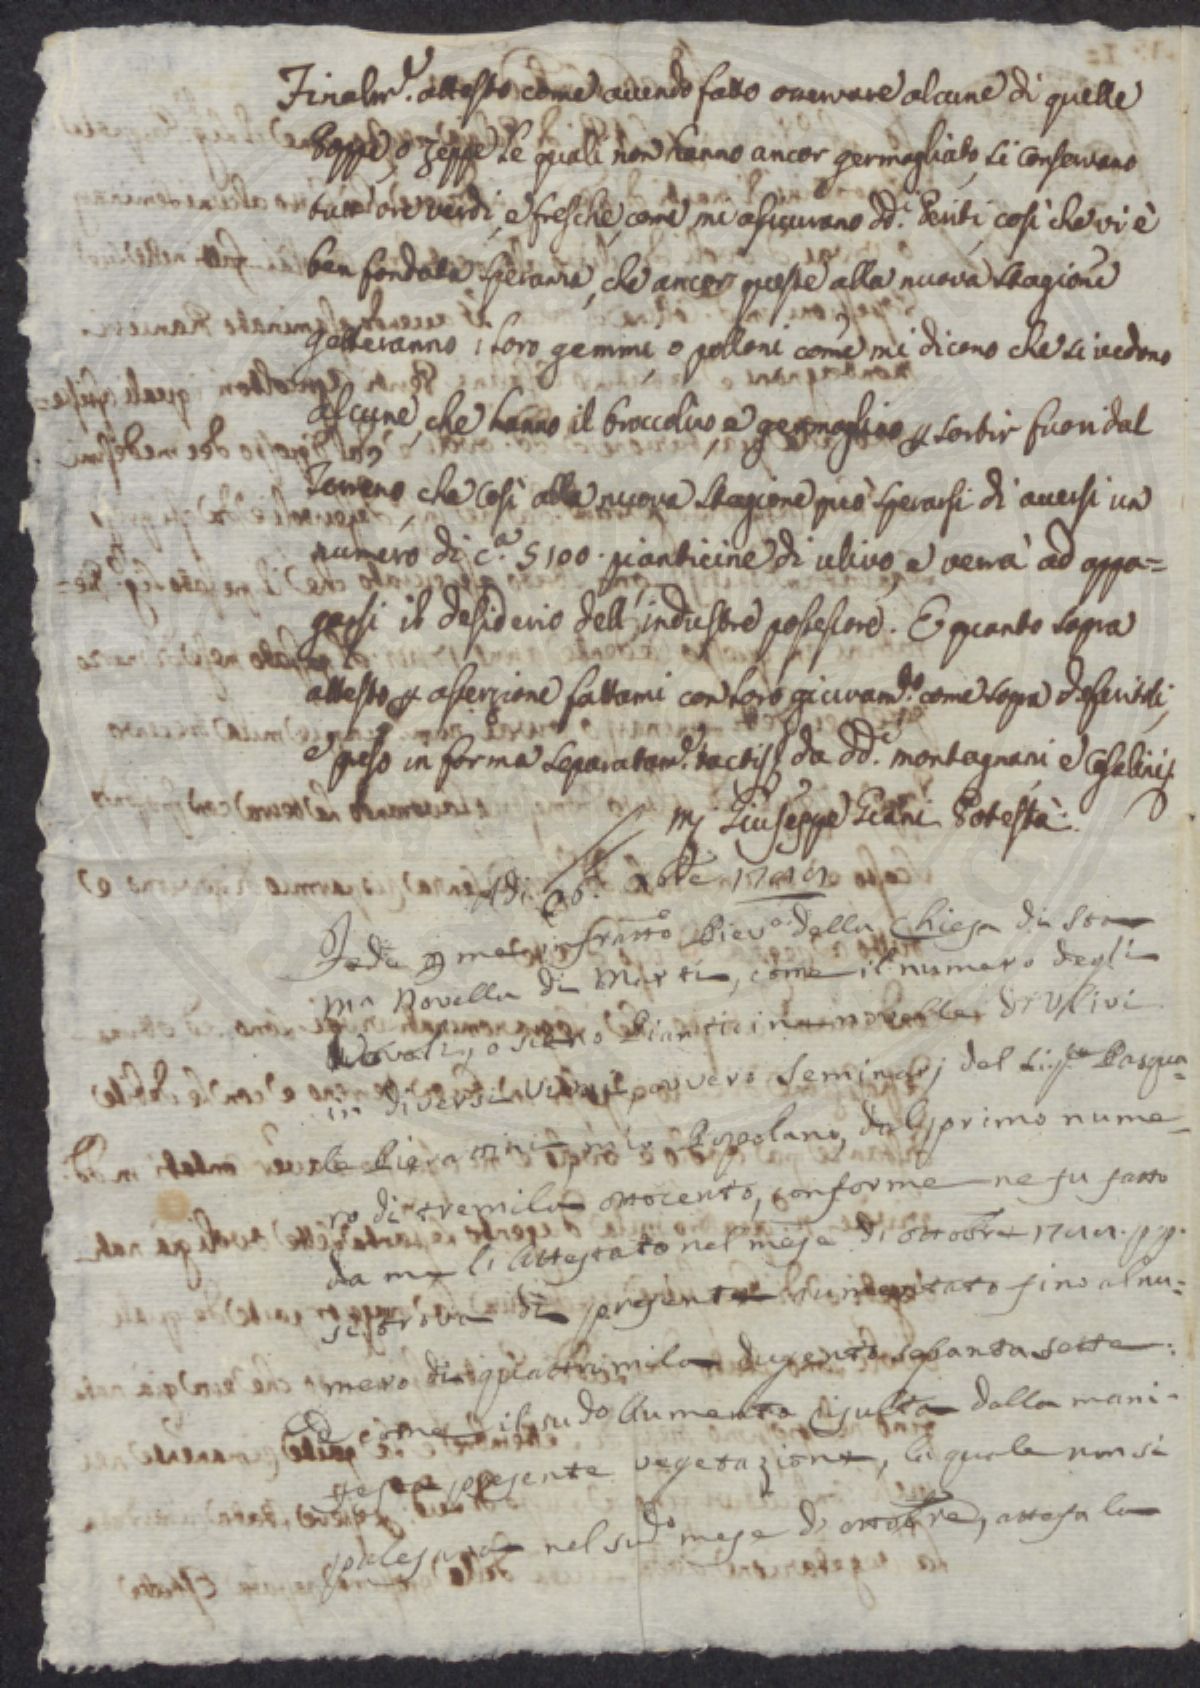 Finalm.e attesto come avendo fatto osservare alcune di quelle
Toppe, o Zeppe le quali non hanno ancor germogliato, si conservano
tutt'ore verdi, e fresche, come mi asicurano dd.i Periti, così che vi è
ben fondata speranza, che ancor queste alla nuova stagione
getteranno i loro gemmi, o polloni come mi dicono che si vedono
alcune, che hanno il broccolino e germoglino p sortir fuori dal
Terreno, che così alla nuova stagione può sperarsi di aversi un
numero di c.a 5100. pianticine di ulivo, e verrà ad appa=
garsi il desiderio dell'industre possessore. E quanto sopra
attesto p asserzione fattami con loro giuram.to come sopra deferitoli,
e preso in forma separatam.e tactis da dd.i Montagnani e Casalini
Mj Giuseppe Giani Potestà.
Adi 26. Xbre
Fede p me infratto Piev.o della Chiesa di Sta
Ma Novella di Marti, come il numero degli
Vovoli, o sieno Pianticine novelle di Ulivi
in diversi Vivai, ovvero Seminarj del Sig.re Pasqua=
le Pieracini mio Popolano, dal primo nume=
ro di tremila ottocento, conforme ne fu fatto
da me li Attestato nel mese di ottobre
si trova di presente Aumentato fino al nu=
mero di quattromila dugento sepantasette:
E come il sud.o Aumento risulta dalla mani=
presente vegetazione, la quale non si
nel sud.o mese di ottobre, attesa la